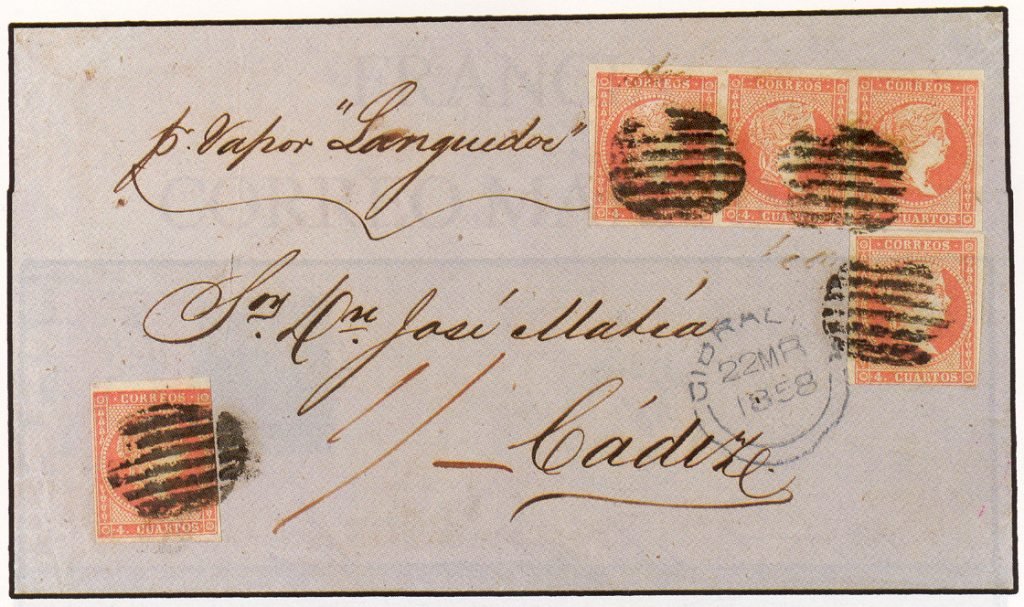 CORREOS CORREOS CORREOS
4. CUARTOS 4. CUARTOS 4. CUARTOS
pr. Vapor "Languedoc"
CORREOS
4. CUARTOS
Sor. Dn. José Matía
GIBRALTAR
22MR
1858
1/–
Cádiz.
CORREOS
4. CUARTOS